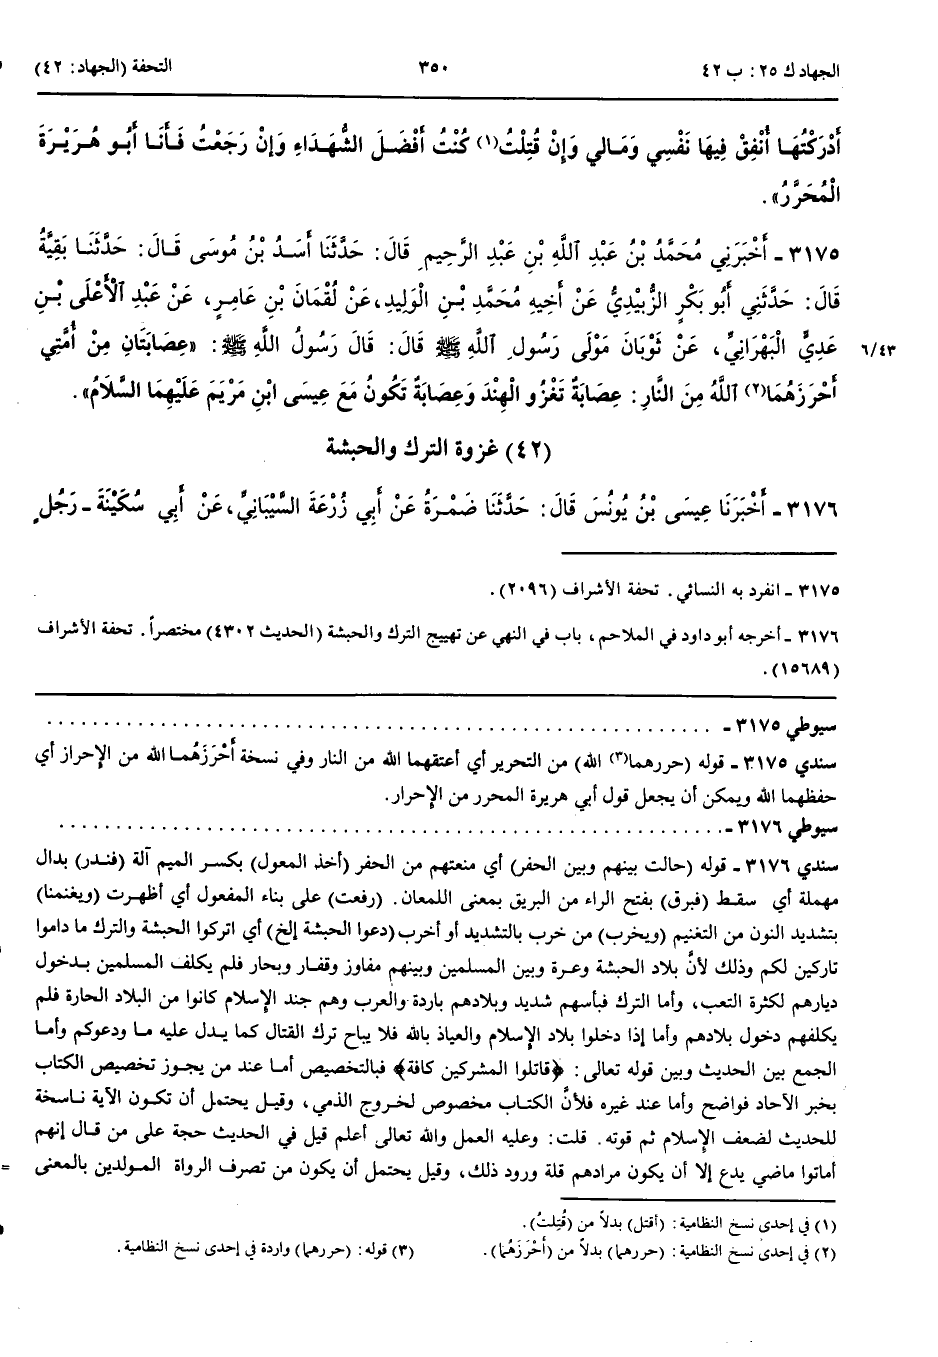 الجهاد ك ٢٥: ب ٤٢
٣٥٠
التحفة (الجهاد: ٤٢)
أَدْرَكْتُهَا أُنْفِقْ فِيهَا نَفْسِي وَمَالِي وَإِنْ قُتِلْتُ(١) كُنْتُ أَفْضَلَ الشُّهَدَاءِ وَإِنْ رَجَعْتُ فَأَنَا أَبُو هُرَيْرَةَ
الْمُحَرَّرُ».
٣١٧٥ - أَخْبَرَنِي مُحَمَّدُ بْنُ عَبْدِ اللَّهِ بْنِ عَبْدِ الرَّحِيمِ قَالَ: حَدَّثَنَا أَسَدُ بْنُ مُوسَى قَالَ: حَدَّثَنَا بَقِيَّةُ
قَالَ: حَدَّثَنِي أَبُو بَكْرٍ الزُّبَيْدِيُّ عَنْ أَخِيهِ مُحَمَّدِ بْنِ الْوَلِيدِ، عَنْ لُقْمَانَ بْنِ عَامِرٍ، عَنْ عَبْدِ الْأَعْلَى بْنِ
عَدِيٍّ الْبَهْرَانِيِّ، عَنْ ثَوْبَانَ مَوْلَى رَسُولِ اللَّهِ ﷺ قَالَ: قَالَ رَسُولُ اللَّهِ ﷺ: «عِصَابَتَانِ مِنْ أُمَّتِي
٦/٤٣
أَحْرَزَهُمَا(٢) اللَّهُ مِنَ النَّارِ: عِصَابَةٌ تَغْزُو الْهِنْدَ وَعِصَابَةٌ تَكُونُ مَعَ عِيسَى ابْنِ مَرْيَمَ عَلَيْهِمَا السَّلَامُ».
(٤٢) غزوة الترك والحبشة
٣١٧٦ - أَخْبَرَنَا عِيسَى بْنُ يُونُسَ قَالَ: حَدَّثَنَا ضَمْرَةُ عَنْ أَبِي زُرْعَةَ السَّيْبَانِيِّ، عَنْ أَبِي سُكَيْنَةَ - رَجُلٍ
٣١٧٥ - انفرد به النسائي. تحفة الأشراف (٢٠٩٦).
٣١٧٦ - أخرجه أبو داود في الملاحم، باب في النهي عن تهييج الترك والحبشة (الحديث ٤٣٠٢) مختصراً. تحفة الأشراف
(١٥٦٨٩).
سيوطي ٣١٧٥ - ..............................
سندي ٣١٧٥ - قوله (حررهما(٣) الله) من التحرير أي أعتقهما الله من النار وفي نسخة أَحْرَزَهُمَا الله من الإحراز أي
حفظهما الله ويمكن أن يجعل قول أبي هريرة المحرر من الإحرار.
سيوطي ٣١٧٦ - ..............................
سندي ٣١٧٦ - قوله (حالت بينهم وبين الحفر) أي منعتهم من الحفر (أخذ المعول) بكسر الميم آلة (فندر) بدال
مهملة أي سقط (فبرق) بفتح الراء من البريق بمعنى اللمعان. (رفعت) على بناء المفعول أي أظهرت (ويغنمنا)
بتشديد النون من التغنيم (ويخرب) من خرب بالتشديد أو أخرب (دعوا الحبشة إلخ) أي اتركوا الحبشة والترك ما داموا
تاركين لكم وذلك لأنَّ بلاد الحبشة وعرة وبين المسلمين وبينهم مفاوز وقفار وبحار فلم يكلف المسلمين بدخول
ديارهم لكثرة التعب، وأما الترك فبأسهم شديد وبلادهم باردة والعرب وهم جند الإسلام كانوا من البلاد الحارة فلم
يكلفهم دخول بلادهم وأما إذا دخلوا بلاد الإسلام والعياذ بالله فلا يباح ترك القتال كما يدل عليه ما ودعوكم وأما
الجمع بين الحديث وبين قوله تعالى: ﴿قاتلوا المشركين كافة﴾ فبالتخصيص أما عند من يجوز تخصيص الكتاب
بخبر الآحاد فواضح وأما عند غيره فلأنَّ الكتاب مخصوص لخروج الذمي، وقيل يحتمل أن تكون الآية ناسخة
للحديث لضعف الإسلام ثم قوته. قلت: وعليه العمل والله تعالى أعلم قيل في الحديث حجة على من قال إنهم
أماتوا ماضي يدع إلا أن يكون مرادهم قلة ورود ذلك، وقيل يحتمل أن يكون من تصرف الرواة المولدين بالمعنى =
(١) في إحدى نسخ النظامية: (أقتل) بدلاً من (قُتِلتُ).
(٢) في إحدى نسخ النظامية: (حررهما) بدلاً من (أَحْرَزَهُمَا).
(٣) قوله: (حررهما) واردة في إحدى نسخ النظامية.